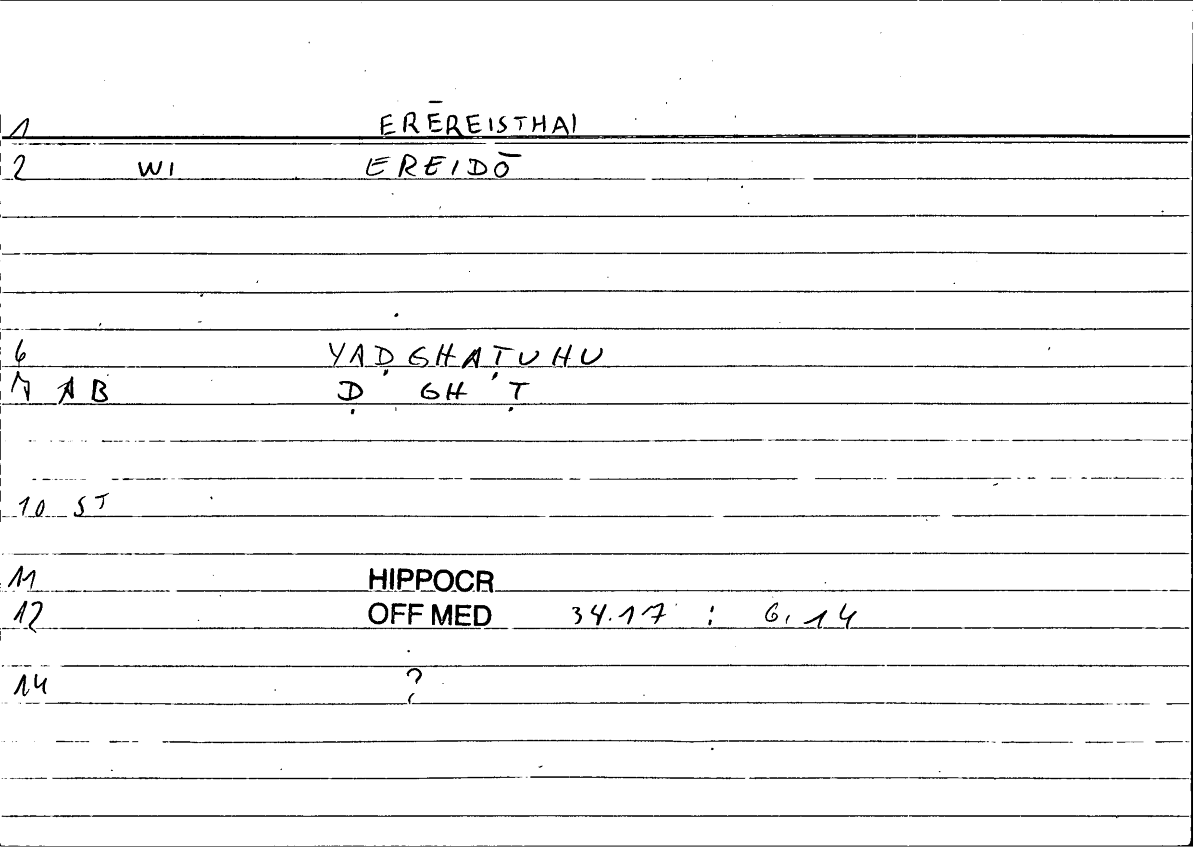 1 ERĒREISTHAI
2 WI EREIDŌ
6 YAḌGHAṬUHU
7 AB Ḍ GH Ṭ
10 ST
11 HIPPOCR
12 OFF MED 34.17 : 6,14
14 ?